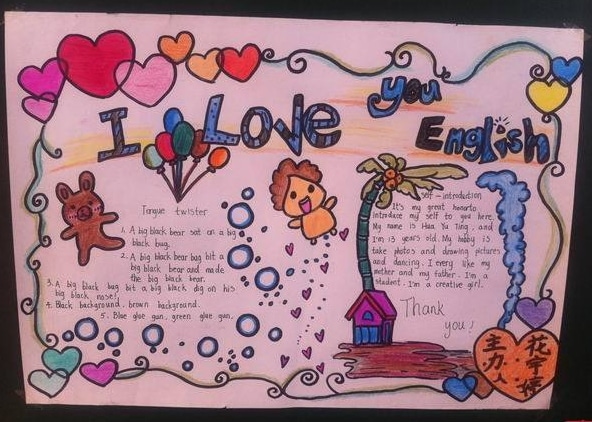 I Love you English
Tongue twister
1. A big black bear sat on a big
black bug.
2. A big black bear bug bit a
big black bear and made
the big black bear.
3. A big black bug bit a big black dig on his
big black nose!
4. Black background, brown background.
5. Blue glue gun, green glue gun.
self-introduction
It's my great honor to
introduce my self to you here.
My name is Hua Yu Ting, and
I'm 13 years old. My hobby is
take photos and drawing pictures
and dancing. I every like my
mother and my father. I'm a
student. I'm a creative girl.
Thank
you!
主办人
花宇婷